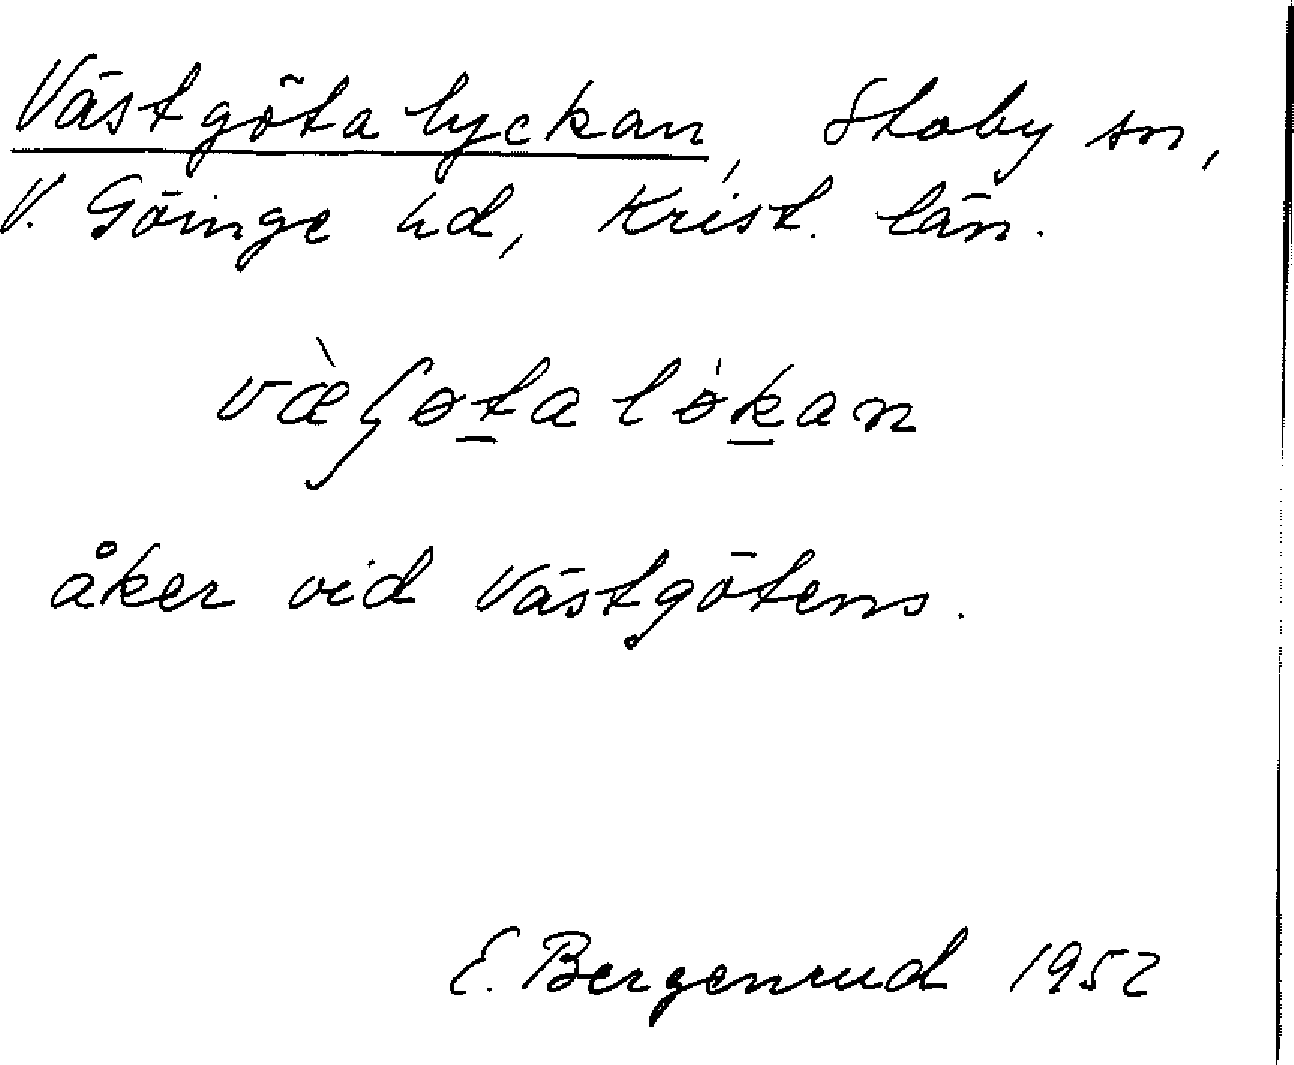 Västgötalyckan, Stoby sn,
V. Göinge hd, Krist. län.
væ̀ʃøta lø̍kan
åker vid Västgötens.
E. Bergenrud 1952